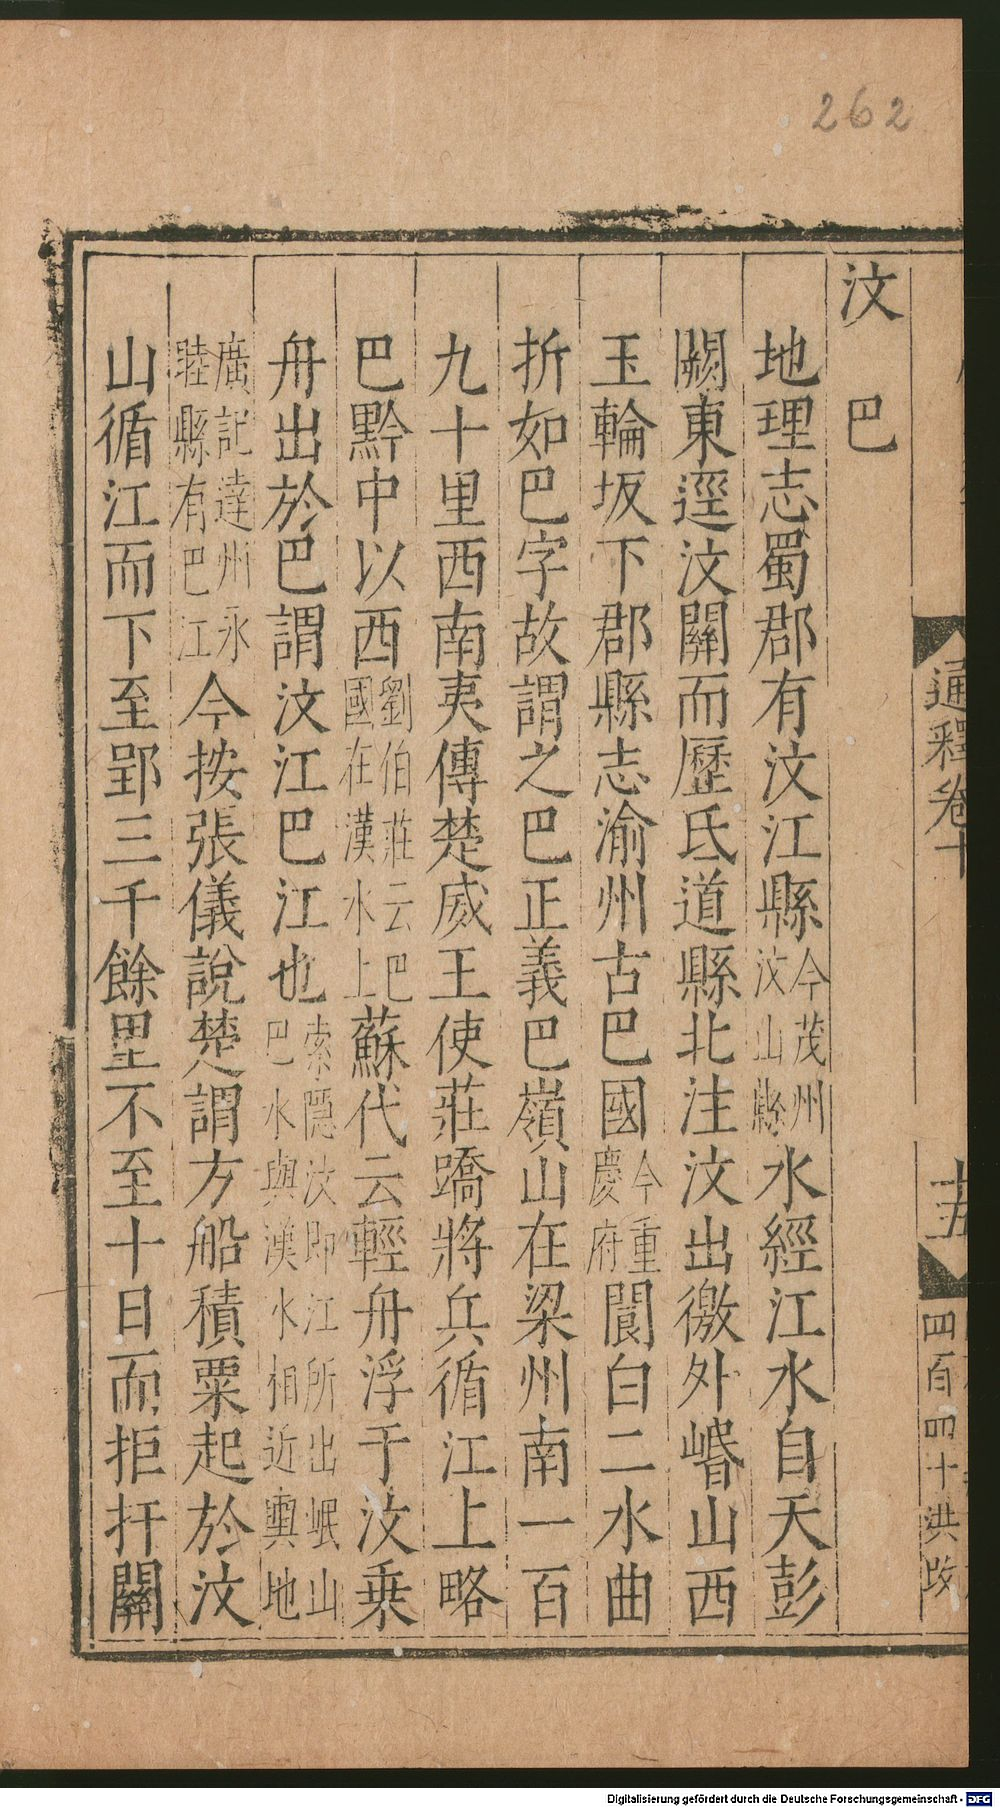 262
通釋卷十
十五
四百四十洪攺
汶 巴
地理志蜀郡有汶江縣今茂州汶山縣水經江水自天彭
闕東逕汶關而歷氐道縣北注汶出徼外㟭山西
玉輪坂下郡縣志渝州古巴國今重慶府閬白二水曲
折如巴字故謂之巴正義巴嶺山在梁州南一百
九十里西南夷傳楚威王使莊蹻將兵循江上略
巴黔中以西劉伯莊云巴國在漢水上蘇代云輕舟浮于汶乗
舟出於巴謂汶江巴江也索隱汶即江所出岷山巴水與漢水相近輿地
廣記達州永睦縣有巴江今按張儀說楚謂方船積粟起於汶
山循江而下至郢三千餘里不至十日而拒扞關
Digitalisierung gefördert durch die Deutsche Forschungsgemeinschaft - DFG